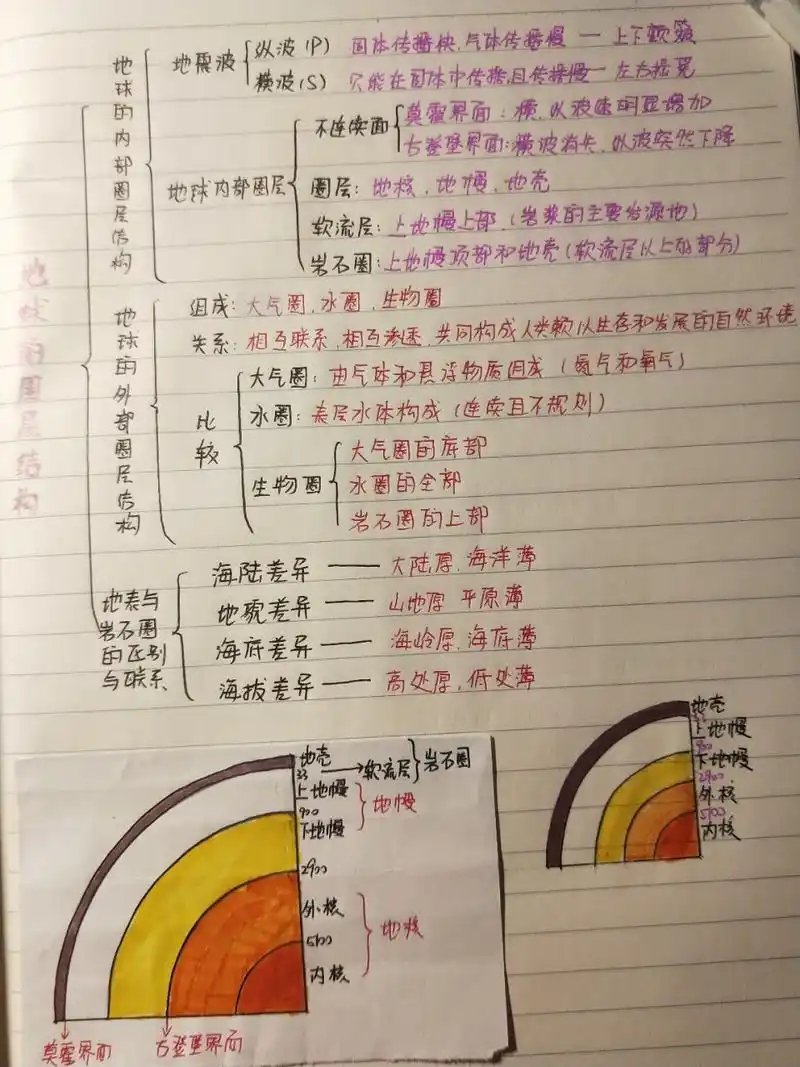 地球的圈层结构
地球的内部圈层结构
地震波
纵波(P) 固体传播快,气体传播慢 — 上下颠簸
横波(S) 只能在固体中传播,且传播慢 — 左右摇晃
地球内部圈层
不连续面
莫霍界面:横、纵波速明显增加
古登堡界面:横波消失,纵波突然下降
圈层:地核、地幔、地壳
软流层:上地幔上部(岩浆的主要发源地)
岩石圈:上地幔顶部和地壳(软流层以上的部分)
地球的外部圈层结构
组成:大气圈,水圈,生物圈
关系:相互联系,相互渗透,共同构成人类赖以生存和发展的自然环境
比较
大气圈:由气体和悬浮物质组成(氮气和氧气)
水圈:表层水体构成(连续且不规则)
生物圈
大气圈的底部
水圈的全部
岩石圈的上部
地表与
岩石圈
的区别
与联系
海陆差异 — 大陆厚,海洋薄
地貌差异 — 山地厚 平原薄
海底差异 — 海岭厚,海底薄
海拔差异 — 高处厚,低处薄
地壳
33 → 软流层 岩石圈
上地幔
900 地幔
下地幔
2900
外核
5100 地核
内核
莫霍界面 古登堡界面
地壳
33
上地幔
900
下地幔
2900
外核
5100
内核